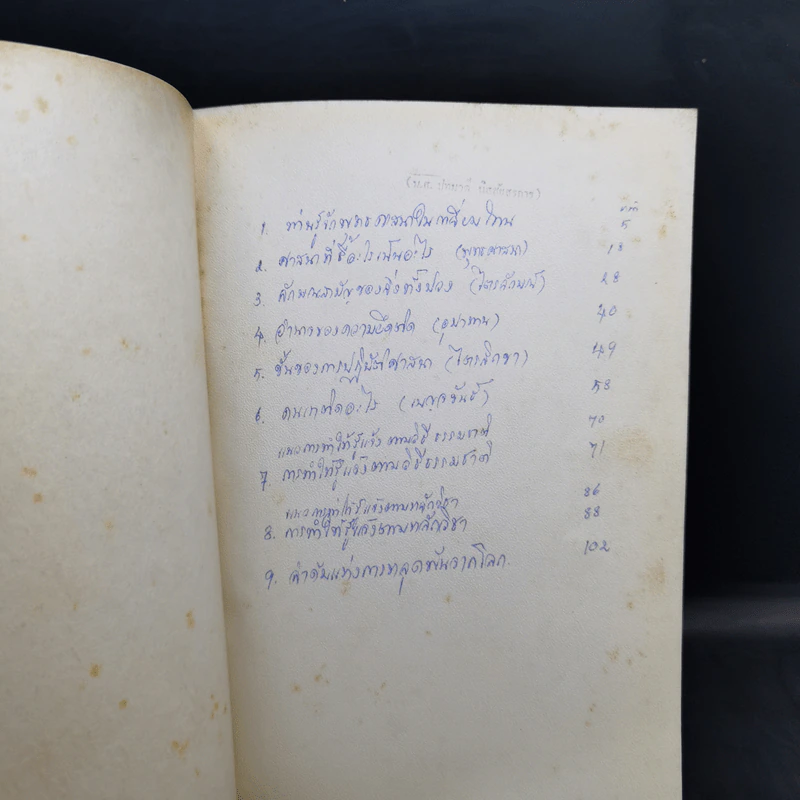 1. ท่านรู้จักพุทธศาสนาในเหลี่ยมไหน 5
2. ศาสนาที่ชี้อะไรเป็นอะไร (พุทธศาสนา) 13
3. ลักษณะสามัญของสิ่งทั้งปวง (ไตรลักษณ์) 28
4. อำนาจของความยึดติด (อุปาทาน) 40
5. ขั้นของการปฏิบัติศาสนา (ไตรสิกขา) 49
6. คนเราติดอะไร (เบญจขันธ์) 58
แนวการทำให้รู้แจ้งตามวิธีธรรมชาติ 70
7. การทำให้รู้แจ้งตามวิธีธรรมชาติ 71
แนวการทำให้รู้แจ้งตามหลักวิชา 86
8. การทำให้รู้แจ้งตามหลักวิชา 88
9. ลำดับแห่งการหลุดพ้นจากโลก. 102